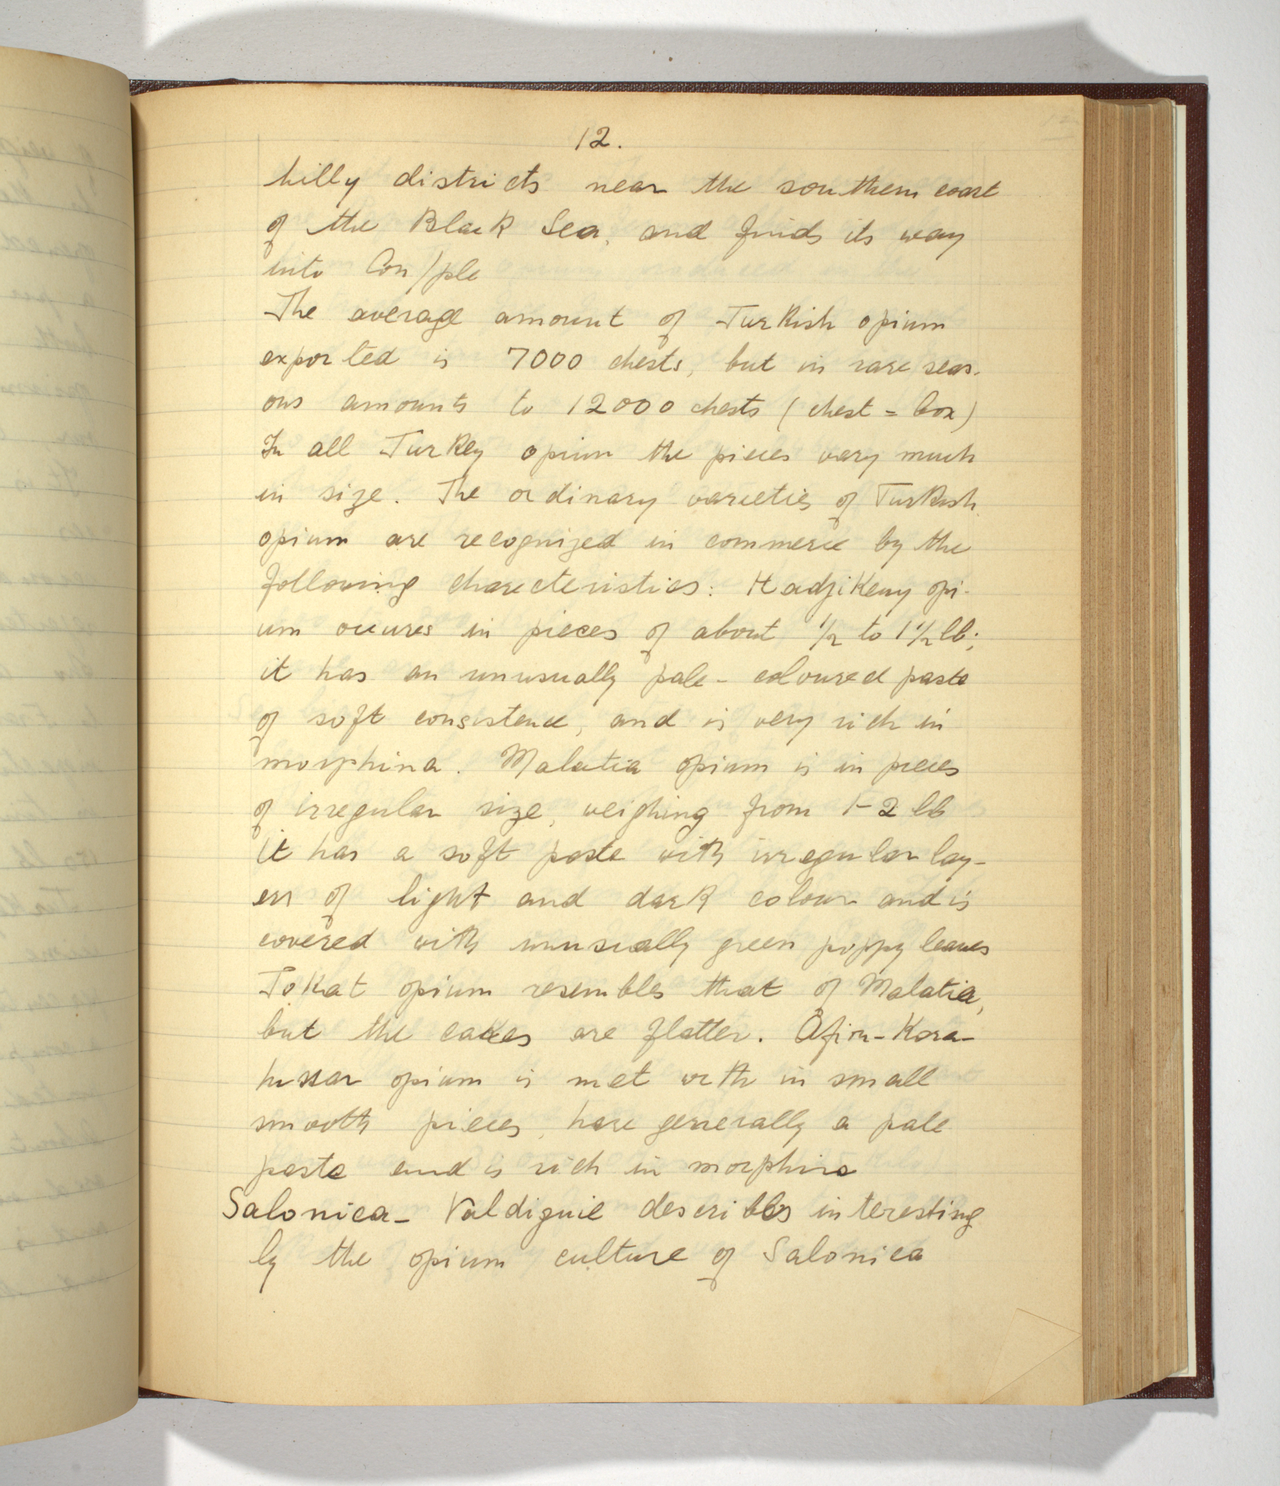 12.
hilly districts near the southern coast
of the Black Sea, and finds its way
into Con/ple
The average amount of Turkish opium
exported is 7000 chests, but in rare seas-
ons amounts to 12000 chests (chest = box)
In all Turkey opium the pieces vary much
in size. The ordinary varieties of Turkish
opium are recognized in commerce by the
following charecteristics: Hadjikeuy opi-
um occures in pieces of about 1/2 to 1 1/2 lb;
it has an unusually pale-coloured paste
of soft consistence, and is very rich in
morphina. Malatia opium is in pieces
of irregular size, weighing from 1-2 lb
it has a soft paste with irregular lay-
ers of light and dark colour and is
covered with unusually green poppy leaves
Tokat opium resembles that of Malatia,
but the cakes are flatter. Afion-Kara-
hissar opium is met with in small
smooth pieces, has generally a pale
paste and is rich in morphine
Salonica- Valdiguié describes interesting
ly the opium culture of Salonica